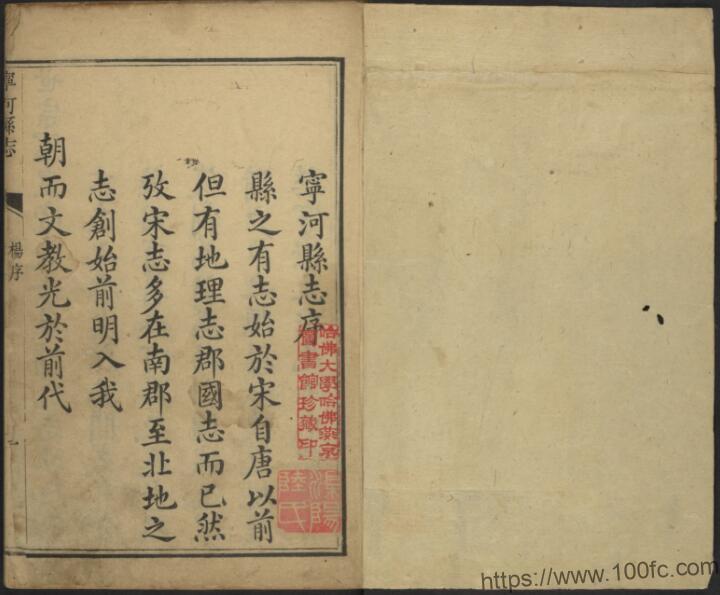 寧河縣志序
縣之有志始於宋自唐以前
但有地理志郡國志而已然
攷宋志多在南郡至北地之
志創始前明入我
朝而文教光於前代
寧河縣志
楊序
一
哈佛大學哈佛燕京
圖書館珍藏印
https://www.100fc.com